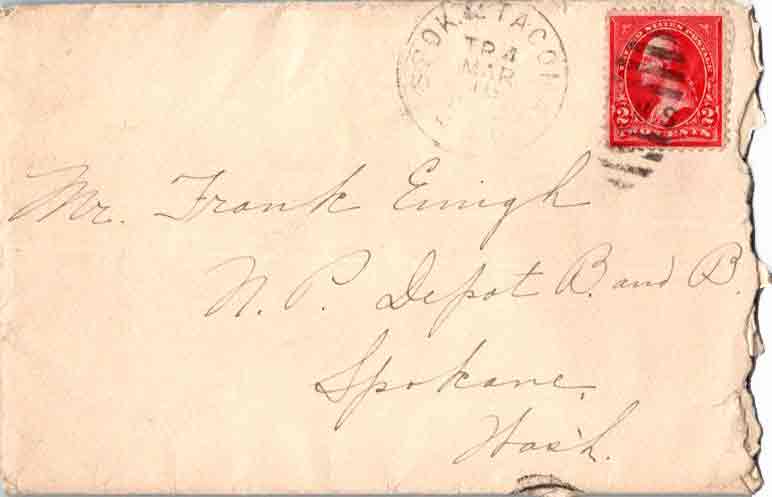 SPOK. & TACOM
TR 4
MAR
UNITED STATES POSTAGE
2 2
TWO CENTS
Mr. Frank Emigh
N. P. Depot B. and B.
Spokane,
Wash.